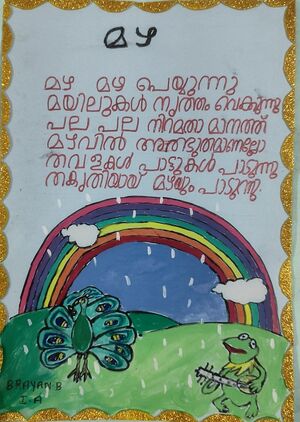 മഴ
മഴ മഴ പെയ്യുന്നു
മയിലുകൾ നൃത്തം വെക്കുന്നു
പല പല നിറമതാ മാനത്ത്
മഴവിൽ അത്ഭുതമാണല്ലോ
തവളകൾ പാട്ടുകൾ പാടുന്നു
തകൃതിയായ് മഴയും പാടുന്നു.
BRAYAN B
I-A